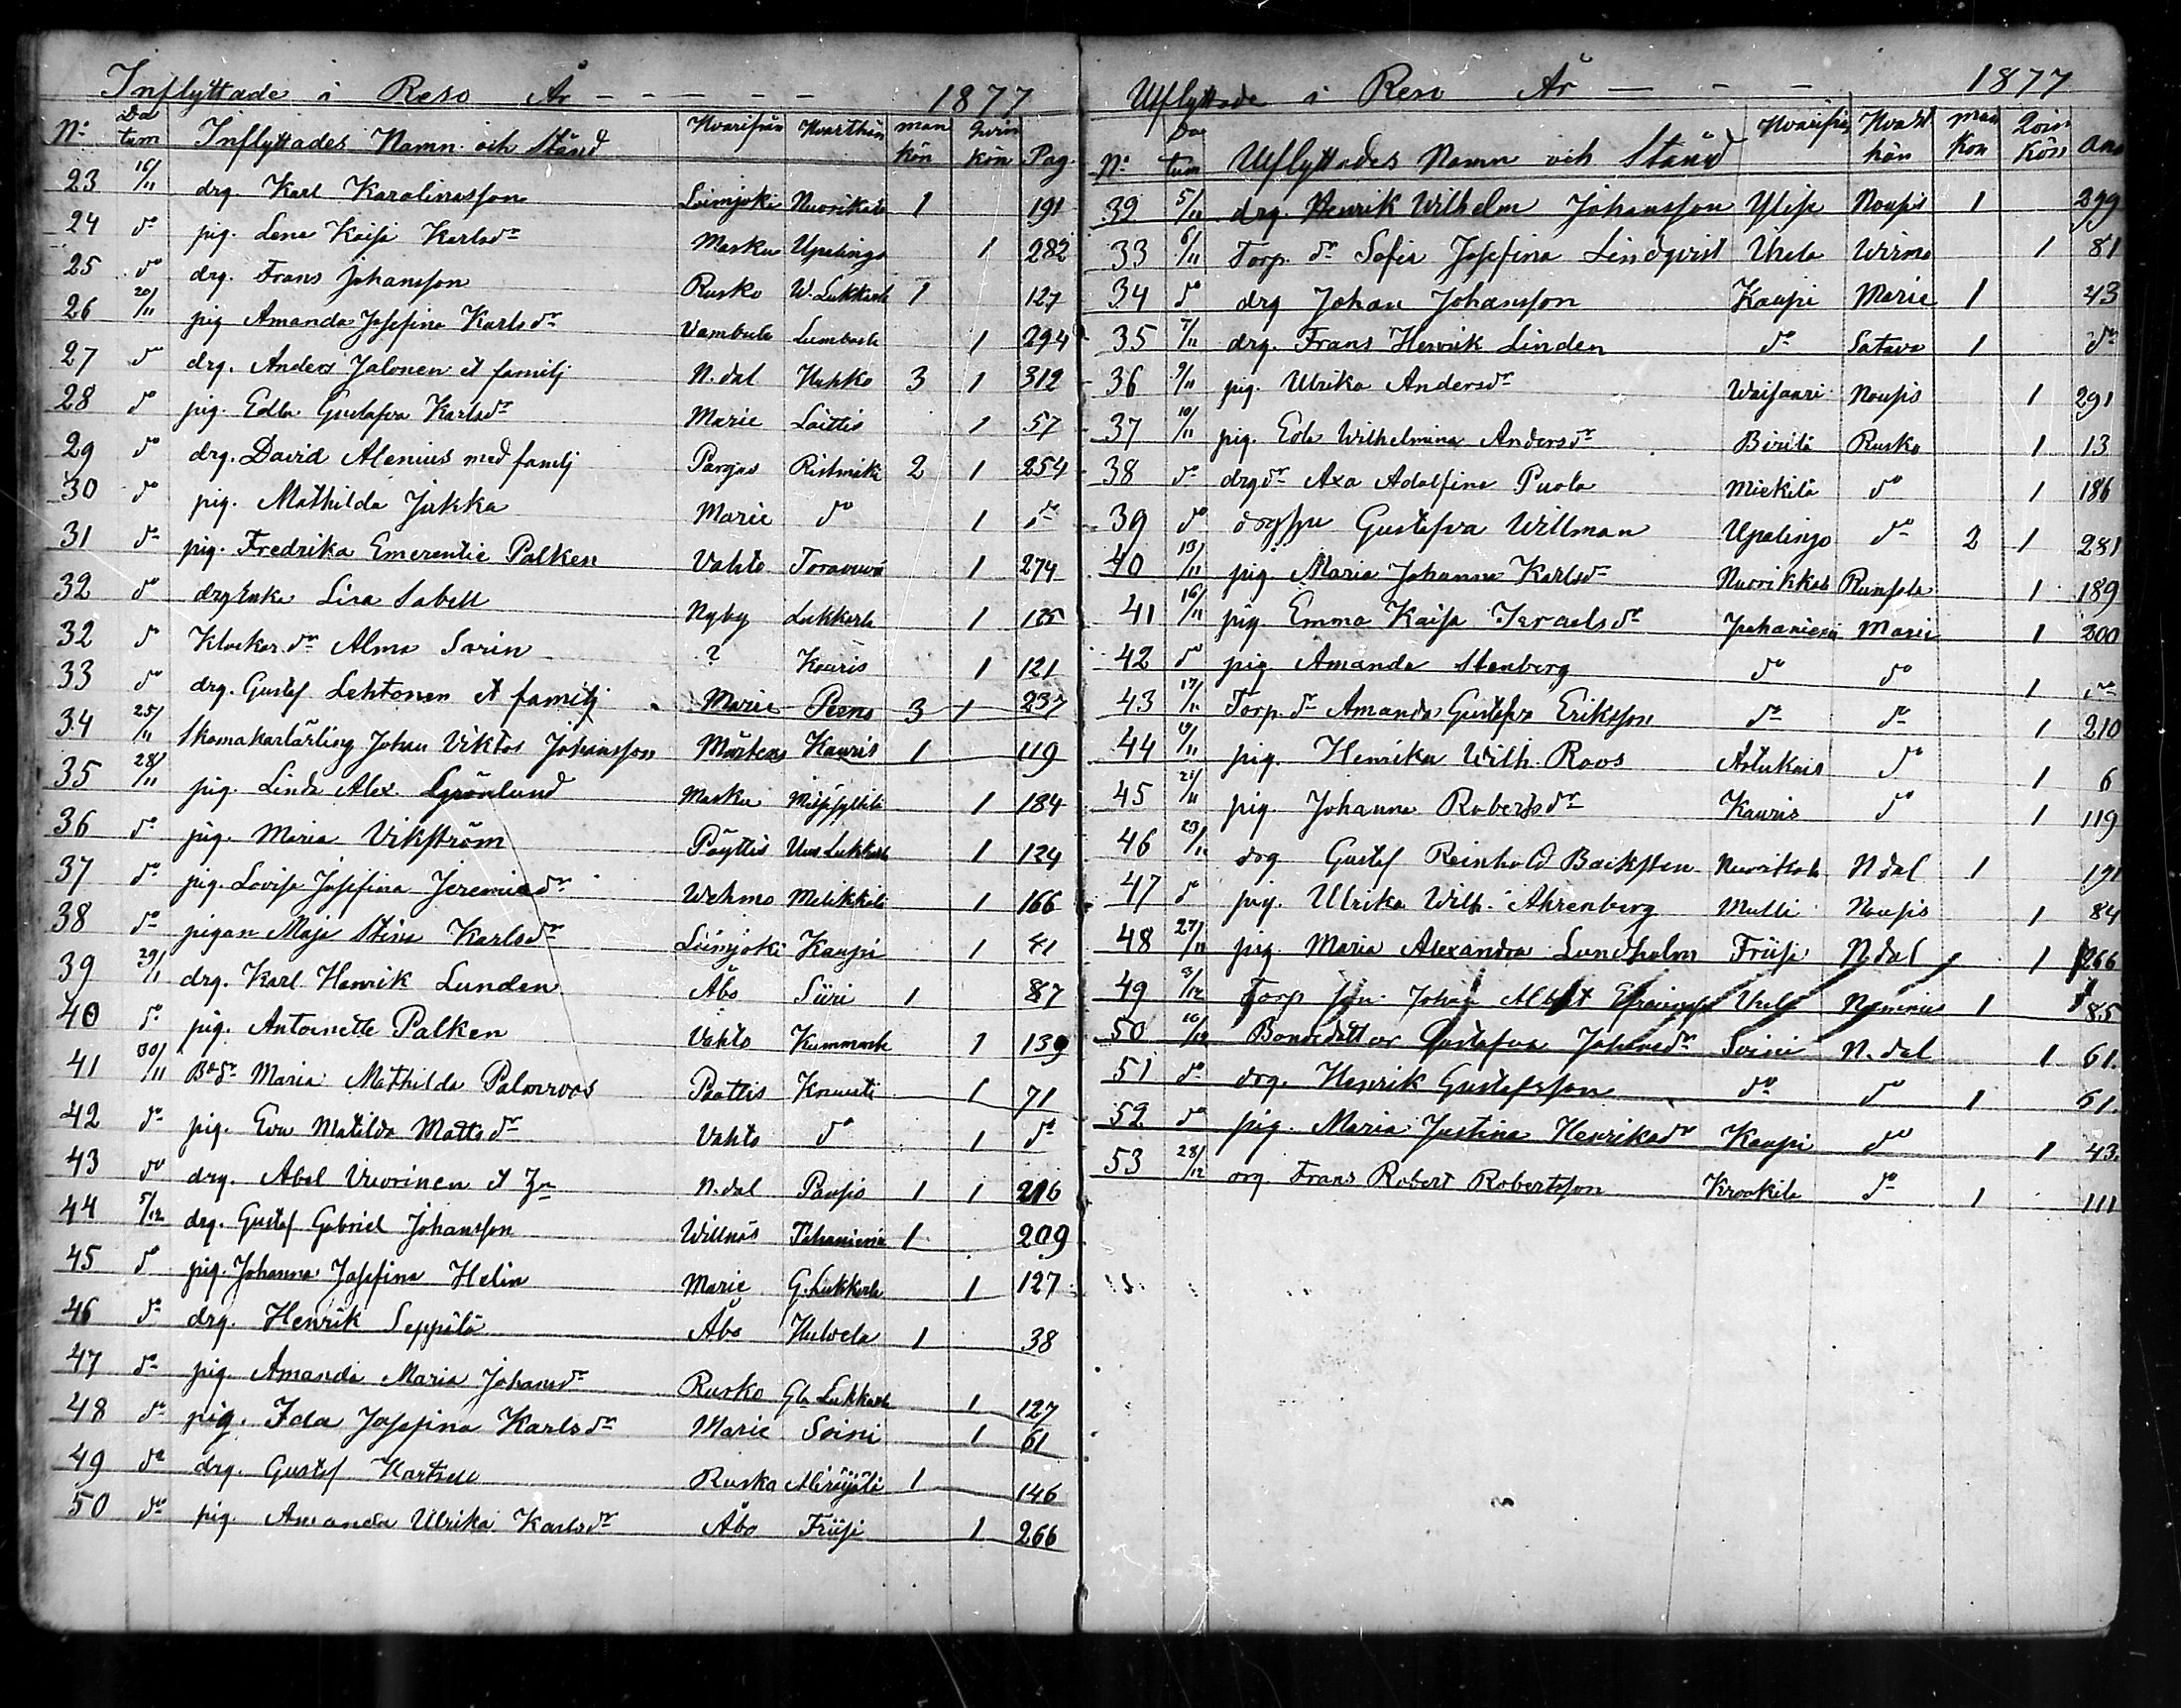 Inflyttade i Reso År - - - - - 1877
No Datum Inflyttades Namn och Stånd Hvarifrån Hvarthän mankön qvinkön Pag.
23 16/11 drg. Karl Karolinasson Loimjoki Nuorikkala 1 191
24 do pig. Lena Kaisa Karlsdr Masku Upalingo 1 282
25 do drg. Frans Johansson Rusko W. Lukkarla 1 127
26 20/11 pig Amanda Josefina Karlsdr Vambula Lumborla 1 294
27 do drg. Anders Jalonen et familj N.dal Huhko 3 1 312
28 do pig. Edla Gustafva Karlsdr Marie Laittis 1 57
29 do drg. David Alenius med familj Pargas Ristimäki 2 1 254
30 do pig. Mathilda Jukka Marie do 1 do
31 do pig. Fredrika Emerentie Palken Vahto 1 274
32 do drg Enka Lisa Sabell Nyby Lukkarla 1 125
32 do Klockar dr Alma Sarin ? Kauris 1 121
33 do drg. Gustaf Lehtonen et familj Marie Peens 3 1 237
34 25/11 Skomakarlärling Johan Viktor Johansson Mårtens Kauris 1 119
35 28/11 pig. Linda Alex. Grönlund Masku 1 184
36 do pig. Maria Vikström Pöyttis Uus Lukkarla 1 124
37 do pig. Lovisa Josefina Jeremiasdr Wehmo Metikkälä 1 166
38 do pigan Maja Stina Karlsdr Loimjoki Kaupi 1 41
39 29/11 drg. Karl Henrik Lunden Åbo Siiri 1 87
40 do pig. Antoinette Palken Vahto Kummorla 1 139
41 30/11 Bodr Maria Mathilda Palmroos Pattis Konsti 1 71
42 do pig. Eva Matilda Mattsdr Vahto do 1 do
43 do drg. Abel Vuorinen et H:u N.dal Paupis 1 1 216
44 5/12 drg. Gustaf Gabriel Johansson Willnäs 1 209
45 do pig. Johanna Josefina Helin Marie G. Lukkarla 1 127
46 do drg. Henrik Seppälä Åbo Hulvela 1 38
47 do pig. Amanda Maria Johansdr Rusko Gla Lukkarla 1 127
48 do pig. Ida Josefina Karlsdr Marie Soini 1 61
49 do drg. Gustaf Hartzell Rusko 1 146
50 do pig. Amanda Ulrika Karlsdr Åbo Friisi 1 266
Utflyttade i Reso År - - - 1877
No Datum Utflyttades Namn och Stånd Hvarifrån Hvart hän mankön Qvinkön
32 5/11 drg. Henrik Wilhelm Johansson Ylise Noupis 1 299
33 6/11 Torp. dr Sofia Josefina Lindqvist Uhela Wirmo 1 81
34 do drg Johan Johansson Kaupi Marie 1 43
35 7/11 drg. Frans Henrik Linden do Satava 1 do
36 9/11 pig. Ulrika Andersdr Waisaari Noupis 1 291
37 10/11 pig. Eda Wilhelmina Andersdr Birilä Rusko 1 13
38 do drgdr Axa Adolfina Puola Mickilä do 1 186
39 do drg hu Gustafva Willman Upalingo do 2 1 281
40 13/11 pig. Maria Johanna Karlsdr Nuorikkala Rungola 1 189
41 16/11 pig. Emma Kaisa Israelsdr Marie 1 200
42 do pig. Amanda Stenberg do do 1 do
43 17/11 Torp. dr Amanda Gustafva Eriksson do do 1 210
44 19/11 pig. Henrika Wilh. Roos Artukais do 1 6
45 21/11 pig. Johanna Robertsdr Kauris do 1 119
46 23/11 drg Gustaf Reinhold Backsten Nuorikkala N dal 1 191
47 do pig. Ulrika Wilh. Ahrenberg Mulli Noupis 1 84
48 27/11 pig. Maria Alexandra Lundholm Friisi N.dal 1 266
49 3/12 Torp. son Johan Albert Efraimsson Uhela Nummis 1 85
50 10/12 Bondedotter Gustafva Johansdr Soini N.dal 1 61.
51 do drg. Henrik Gustafsson do do 1 61.
52 do pig. Maria Justina Henriksdr Kaupi do 1 43.
53 28/12 drg Frans Robert Robertsson Krookila do 1 111